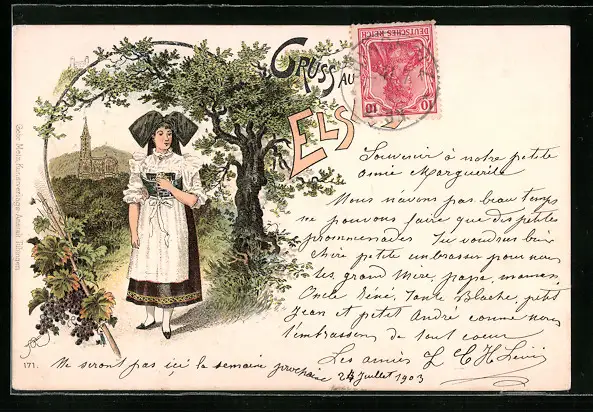 GRUSS AU
ELS
DEUTSCHES REICH
10 10
Souvenir à notre petite
amie Marguerite
Nous n'avons pas beau temps
ne pouvons faire que des petites
promenades Tu voudras bien
chère petite embrasser pour nous
tes grand Mère, papa, maman,
Oncle Réné, Tante Blache, petit
Jean et petit André comme nous
t'embrassons de tout coeur
Les amies L C H Lévis
Ne seront pas ici la semaine prochaine 24 Juillet 1903
Gebr. Metz, Kunstverlags-Anstalt, Tübingen.
171.